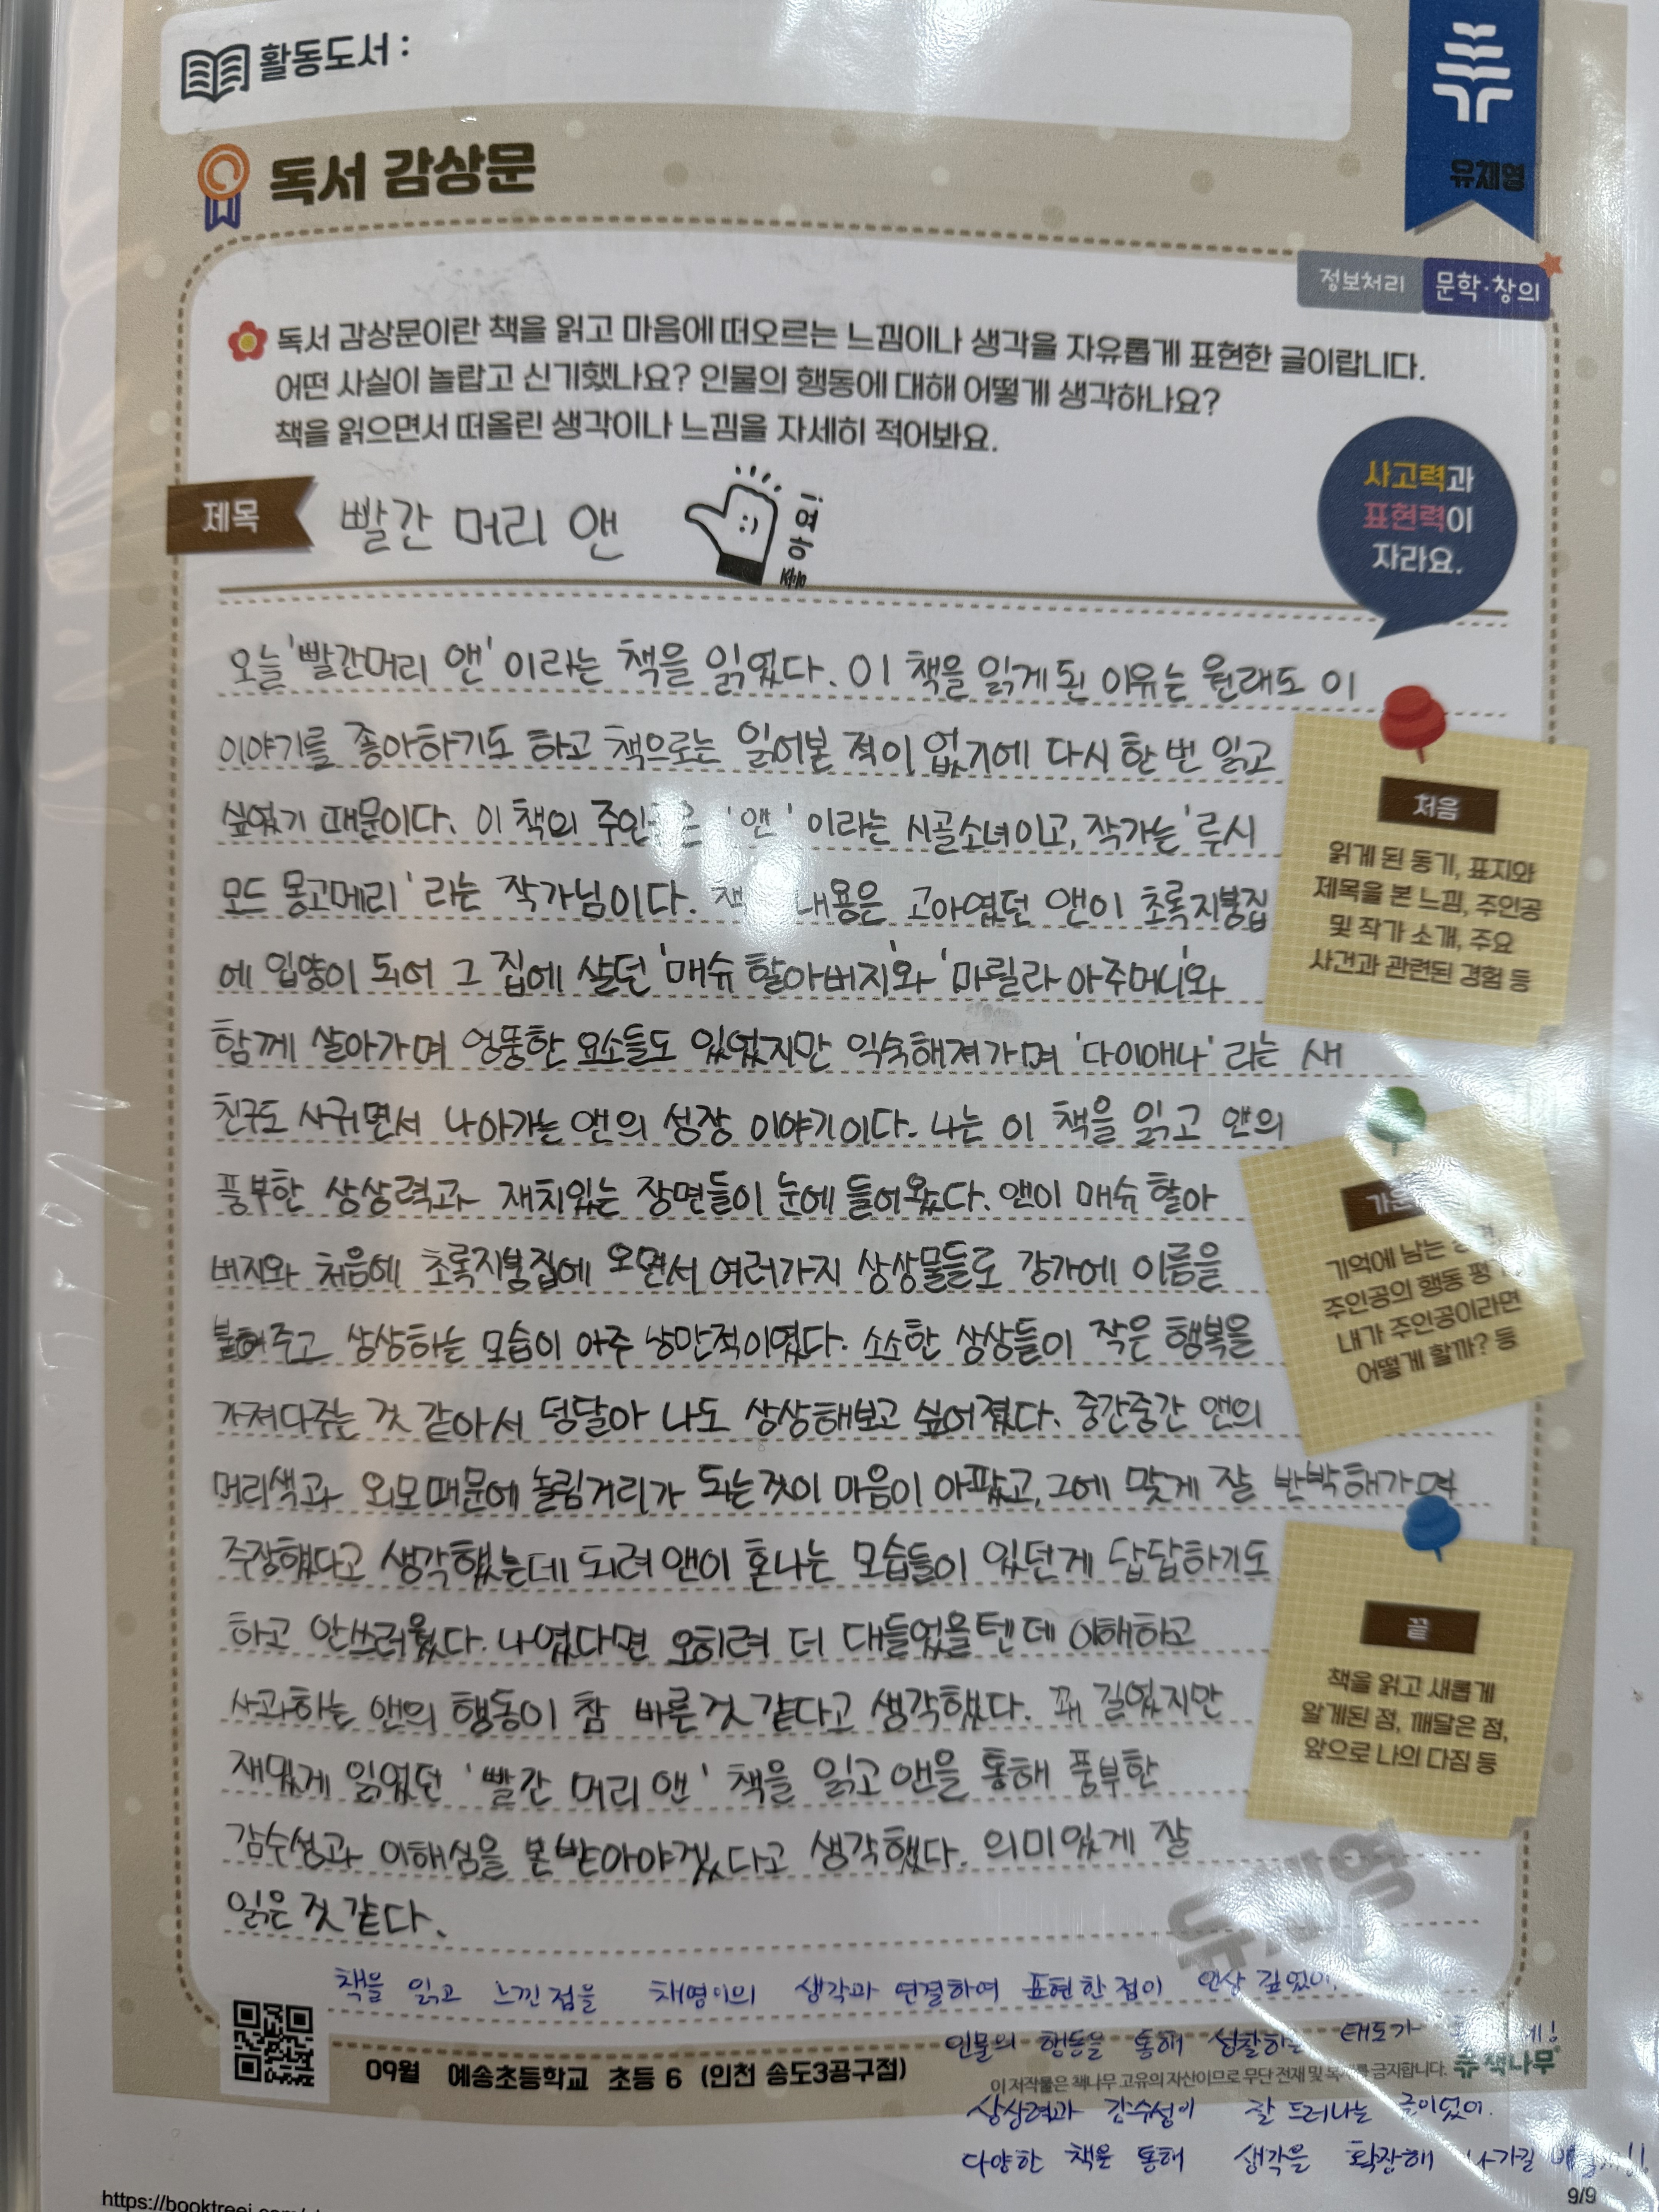 활동도서 :
유채영
독서 감상문
정보처리 문학·창의
독서 감상문이란 책을 읽고 마음에 떠오르는 느낌이나 생각을 자유롭게 표현한 글이랍니다.
어떤 사실이 놀랍고 신기했나요? 인물의 행동에 대해 어떻게 생각하나요?
책을 읽으면서 떠올린 생각이나 느낌을 자세히 적어봐요.
사고력과
표현력이
자라요.
제목 빨간 머리 앤
오늘 '빨간머리 앤' 이라는 책을 읽었다. 이 책을 읽게 된 이유는 원래도 이
이야기를 좋아하기도 하고 책으로는 읽어본 적이 없기에 다시 한 번 읽고
싶었기 때문이다. 이 책의 '앤' 이라는 시골소녀이고, 작가는 '루시
모드 몽고메리' 라는 작가님이다. 내용은 고아였던 앤이 초록지붕집
에 입양이 되어 그 집에 살던 '매슈 할아버지'와 '마릴라 아주머니'와
함께 살아가며 엉뚱한 요소들도 있었지만 익숙해져가며 '다이애나' 라는 새
친구도 사귀면서 나아가는 앤의 성장 이야기이다. 나는 이 책을 읽고 앤의
풍부한 상상력과 재치있는 장면들이 눈에 들어왔다. 앤이 매슈 할아
버지와 처음에 초록지붕집에 오면서 여러가지 상상물들로 강가에 이름을
붙여주고 상상하는 모습이 아주 낭만적이였다. 소소한 상상들이 작은 행복을
가져다주는 것 같아서 덩달아 나도 상상해보고 싶어졌다. 중간중간 앤의
머리색과 외모때문에 놀림거리가 되는것이 마음이 아팠고, 그에 맞게 잘 반박해가며
주장했다고 생각했는데 되려 앤이 혼나는 모습들이 있던게 답답하기도
하고 안쓰러웠다. 나였다면 오히려 더 대들었을텐데 이해하고
사과하는 앤의 행동이 참 바른것 같다고 생각했다. 꽤 길었지만
재밌게 읽었던 '빨간 머리 앤' 책을 읽고 앤을 통해 풍부한
감수성과 이해심을 본받아야겠다고 생각했다. 의미있게 잘
읽은것 같다.
처음
읽게 된 동기, 표지와
제목을 본 느낌, 주인공
및 작가 소개, 주요
사건과 관련된 경험 등
기억에 남는
주인공의 행동
내가 주인공이라면
어떻게 할까? 등
끝
책을 읽고 새롭게
알게된 점, 깨달은 점,
앞으로 나의 다짐 등
책을 읽고 느낀 점을 채영이의 생각과 연결하여 표현한 점이 인상 깊었어
인물의 행동을 통해 성찰하는 태도가
09월 예송초등학교 초등 6 (인천 송도3공구점)
이 저작물은 책나무 고유의 자산이므로 무단 전재 및 금지합니다. 책나무
상상력과 감수성이 잘 드러나는 글이었어.
다양한 책을 통해 생각을 확장해 나가길
https://booktreei.com
9/9